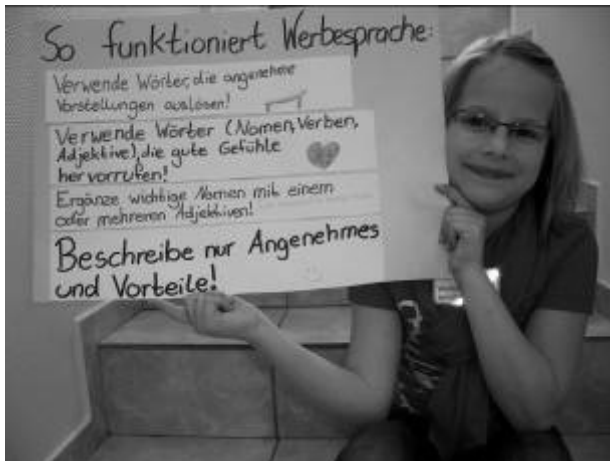 So funktioniert Werbesprache:
Verwende Wörter, die angenehme
Vorstellungen auslösen!
Verwende Wörter (Nomen, Verben,
Adjektive), die gute Gefühle
hervorrufen!
Ergänze wichtige Nomen mit einem
oder mehreren Adjektiven!
Beschreibe nur Angenehmes
und Vorteile!